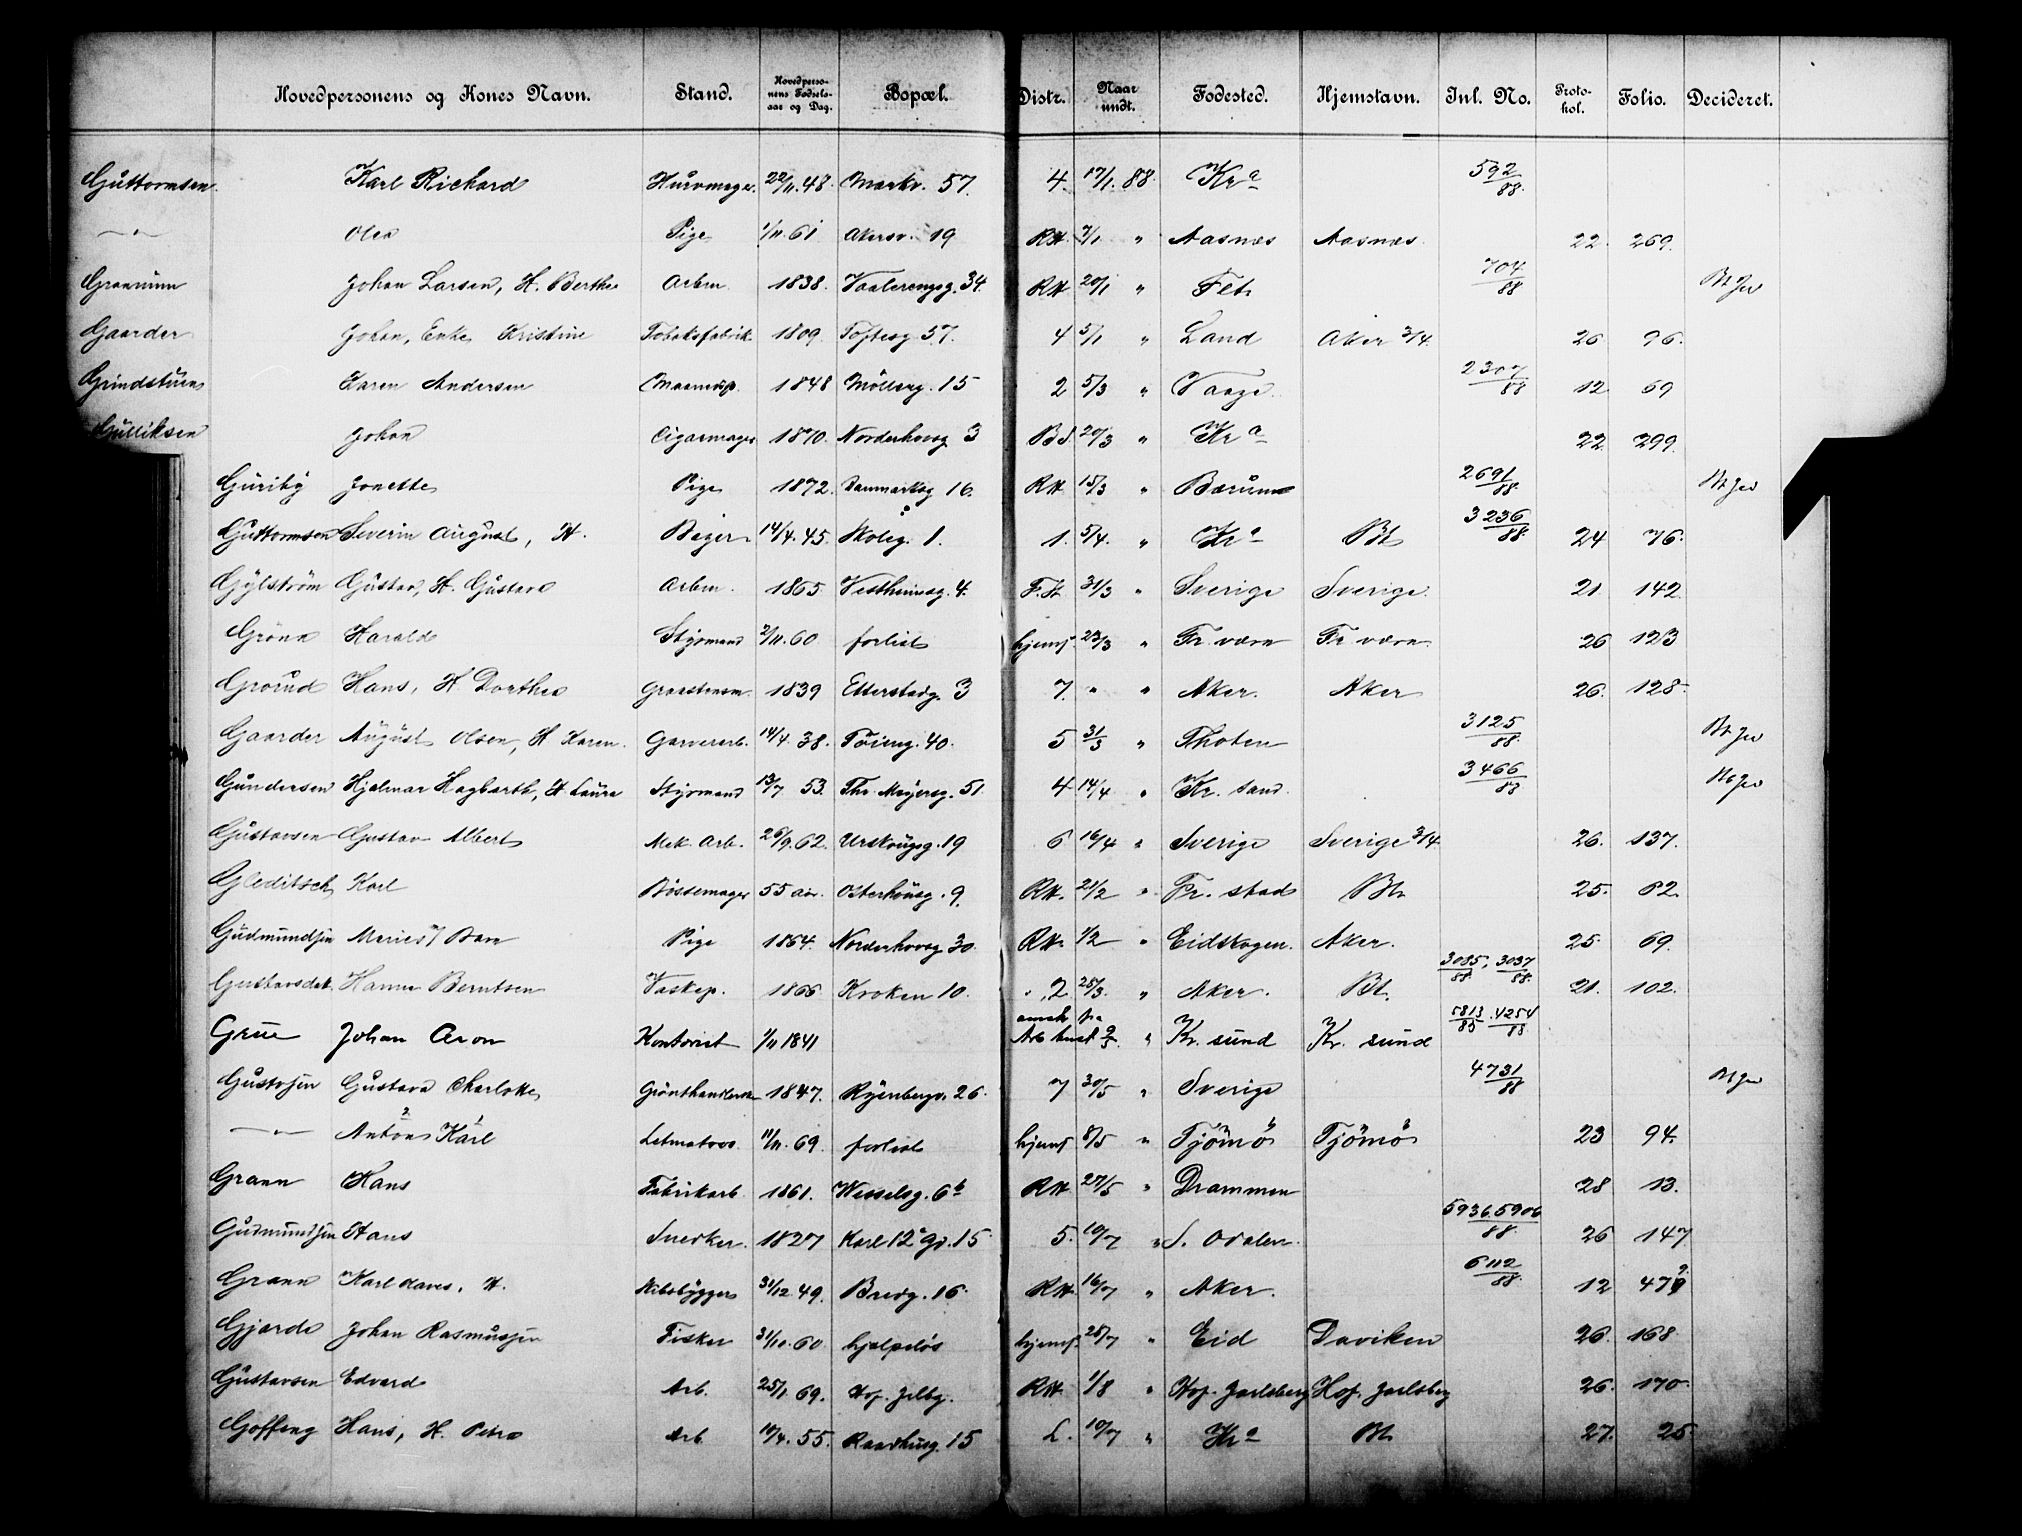 Hovedpersonens og Kones Navn. Stand. Hovedperso-nens Fødsels-aar og Dag. Bopæl. Distr. Naar undt. Fødested. Hjemstavn. Inl. No. Proto-kol. Folio. Decideret.
Guttormsen Karl Richard 22/11 48. Markv. 57. 4. 17/1 88. Kra 592/88
—„— Olea Pige 1/11 61 Akersv. 19 RH. „ Aasnæs Aasnæs 22 269.
Johan Larsen, H. Berthe Arbm. 1838. Vaalerengsg. 34. RH 20/1 „ Fet 704/88
Gaarder Johan, Enke Kristine Tobaksfabrik. 1809. Toftesg 37. 4 5/1 „ Land Aker 3/4. 26 96.
Karen Andersen 1848 Möllerg. 15 2 5/3 „ Vaage. 2307/88 12 69
Gulliksen Johan Cigarmager 1870. Norderhovsg 3 20/3 „ Kra 22 299.
Guriby Jonette Pige 1872. Danmarksg 16. RH 15/3 „ Bærum 2691/88
Guttormsen Severin August, H. Bager 14/4. 45. Skoleg. 1. 1. 5/4. „ Kra Bt 3236/88 24 76.
Gylström Gustav, H. Gustava Arbm. 1865 Vestheimsg. 4. F.H 31/3 „ Sverige Sverige. 21. 142.
Harald Styrmand 2/11. 60. forlist hjemf. 23/3 „ Fr. værn Fr værn 26 123
Grorud Hans, H. Dorthea Graastensm. 1839 Etterstadg. 3 7. „ „ Aker. Aker 26. 128.
Gaarder August Olsen, H Karen. Garverarb. 14/4. 38. Töieng. 40. 5 31/3 „ Thoten 3125/88
Gundersen Hjalmar Hagbarth, H Laura Styrmand 13/7 53. Thv. Meyersg. 51. 4 14/4 „ Kr. sand. 3466/88
Gustavsen Gustav Albert Mek. Arb. 26/9. 62. Urskougsg. 19 6 16/4 „ Sverige Sverige 3/4 26. 137.
Gleditsch Karl Bössemager 55 aar. Osterhausg. 9. RH. 21/2 „ Fr. stad Bt 25. 62.
Gudmundsen Pige 1864. Norderhovsg 30. RH. 1/2 „ Eidskogen. Aker. 25. 69.
Gustavsdat. Hanna Berntsen Vaskep. 1866 Kroken 10. 2 25/3. „ Aker. Bt. 3085/88, 3037/88. 21. 102.
Grue Johan Aron Kontorist 1/11 1841 „ Kr. sund Kr. sund
Gustavsen Gustava Charlotte Grönthandlerske 1847. Ryenbergv. 26. 7 30/5 „ Sverige 4731/88
—„— Anton Karl Letmatros 11/11. 69. forlist hjemf 8/5 „ Tjömö Tjömö 23 94.
Grann Hans Fabrikarb. 1861. Wesselsg. 6b RH 27/5 „ Drammen 28 13.
Gudmundsen Hans Snedker. 1827 Karl 12s gd. 15 5. 10/7 „ S. Odalen. 5936.5906/88. 26 147
Grann H. 31/12 49. Bredg. 16. RH. 16/7 „ Aker. 6112/88. 12
Gjærde Johan Rasmussen Fisker 31/10. 60. hjælpelös hjemf. 28/7 „ Eid Daviken 26. 168.
Gustavsen Edvard Arb. 25/1. 69. RH 1/8 „ Hof. Jarlsberg Hof. Jarlsberg 26. 170.
Goffeng Hans, H. Petra Arb. 55. Raadhusg. 15 L. 10/7 „ Kra Bt 27. 25.